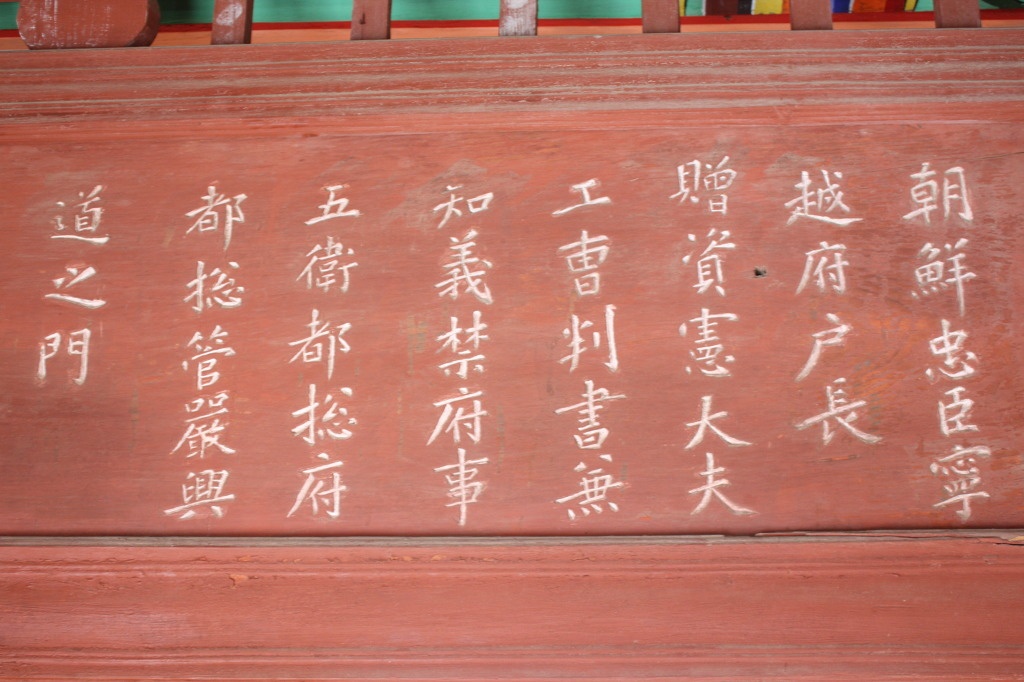 朝鮮忠臣寧
越府戶長
贈資憲大夫
工曺判書兼
知義禁府事
五衛都摠府
都摠管嚴興
道之門